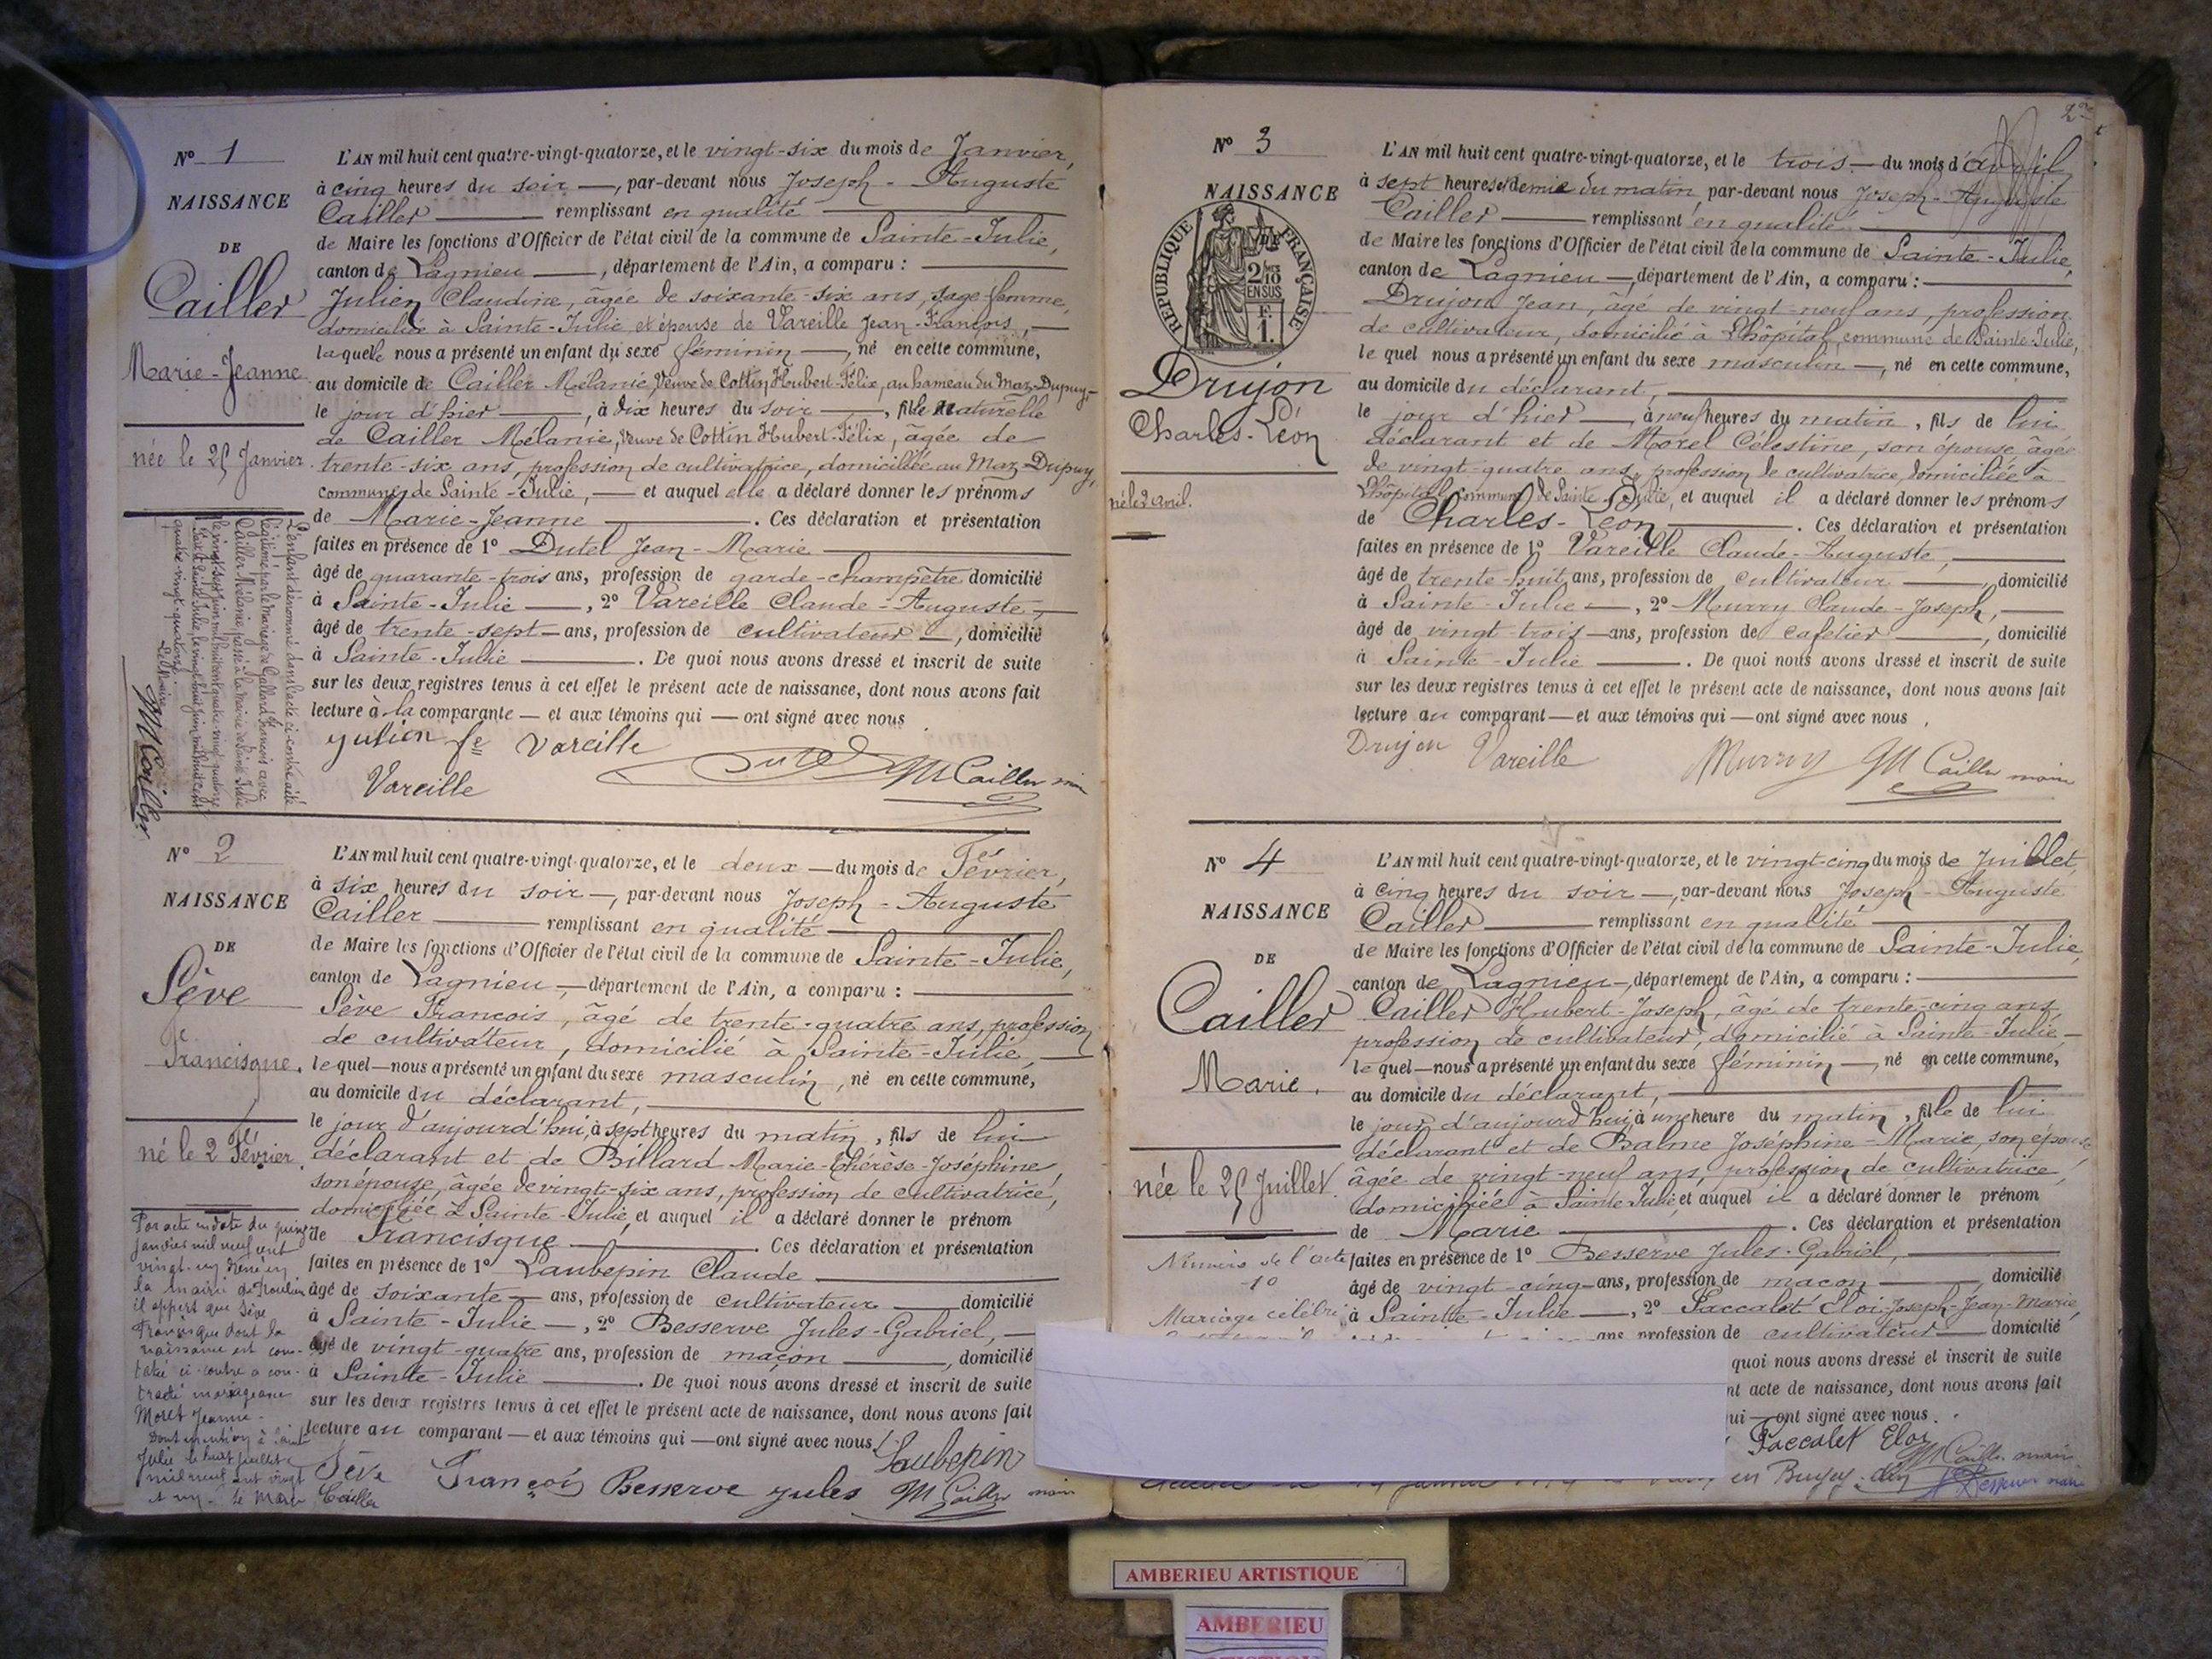 Nº 1
NAISSANCE
DE
Cailler
Marie-Jeanne
née le 25 Janvier.
L'enfant dénommé dans l'acte ci-contre a été
légitimé par le mariage de Gallard François avec
Cailler Mélanie, passé à la mairie de Sainte Julie
le vingt-sept juin mil huit cent quatre-vingt-quatorze
Fait à Sainte-Julie, le vingt-huit juin mil huit cent
quatre-vingt-quatorze.
Le Maire
M Cailler
L'AN mil huit cent quatre-vingt-quatorze, et le vingt-six du mois de Janvier,
à cinq heures du soir —, par-devant nous Joseph-Auguste
Cailler — remplissant en qualité —
de Maire les fonctions d'Officier de l'état civil de la commune de Sainte-Julie,
canton de Lagnieu —, département de l'Ain, a comparu : —
Julien Claudine, âgée de soixante-six ans, sage femme,
domiciliée à Sainte-Julie et épouse de Vareille Jean-François, —
laquelle nous a présenté un enfant du sexe féminin —, né en cette commune,
au domicile de Cailler Mélanie, veuve de Cottin Hubert-Félix, au hameau du Maz-Dupuy,
le jour d'hier —, à dix heures du soir —, fille naturelle
de Cailler Mélanie, veuve de Cottin Hubert-Félix, âgée de
trente-six ans, profession de cultivatrice, domiciliée au Maz-Dupuy,
commune de Sainte-Julie, — et auquel elle a déclaré donner les prénoms
de Marie-Jeanne — . Ces déclaration et présentation
faites en présence de 1º Dutel Jean-Marie —
âgé de quarante-trois ans, profession de garde-champêtre domicilié
à Sainte-Julie —, 2º Vareille Claude-Auguste, —
âgé de trente-sept — ans, profession de cultivateur —, domicilié
à Sainte-Julie — . De quoi nous avons dressé et inscrit de suite
sur les deux registres tenus à cet effet le présent acte de naissance, dont nous avons fait
lecture à la comparante — et aux témoins qui — ont signé avec nous
Julien fe Vareille
Vareille
Dutel
M Cailler maire
Nº 2
NAISSANCE
DE
Sève
Francisque.
né le 2 Février.
Par acte en date du quinze
janvier mil neuf cent
vingt-un dressé en
la mairie de
il appert que Sève
Francisque dont la
naissance est cons-
tatée ci-contre a con-
tracté mariage avec
Moret Jeanne.
Dont mention à Sainte
Julie le huit juillet
mil neuf cent vingt
et un. Le Maire
Cailler
L'AN mil huit cent quatre-vingt-quatorze, et le deux — du mois de Février,
à six heures du soir —, par-devant nous Joseph-Auguste
Cailler — remplissant en qualité —
de Maire les fonctions d'Officier de l'état civil de la commune de Sainte-Julie,
canton de Lagnieu —, département de l'Ain, a comparu : —
Sève François, âgé de trente-quatre ans, profession
de cultivateur, domicilié à Sainte-Julie, —
lequel — nous a présenté un enfant du sexe masculin, né en cette commune,
au domicile du déclarant, —
le jour d'aujourd'hui, à sept heures du matin, fils de lui
déclarant et de Billard Marie-Thérèse-Joséphine
son épouse, âgée de vingt-six ans, profession de cultivatrice,
domiciliée à Sainte-Julie, et auquel il a déclaré donner le prénom
de Francisque — . Ces déclaration et présentation
faites en présence de 1º Laubepin Claude —
âgé de soixante — ans, profession de cultivateur — domicilié
à Sainte-Julie —, 2º Besserve Jules-Gabriel, —
âgé de vingt-quatre ans, profession de maçon —, domicilié
à Sainte-Julie — . De quoi nous avons dressé et inscrit de suite
sur les deux registres tenus à cet effet le présent acte de naissance, dont nous avons fait
lecture au comparant — et aux témoins qui — ont signé avec nous.
Laubepin
Sève François Besserve Jules M Cailler maire
2
Nº 3
NAISSANCE
DE
RÉPUBLIQUE FRANÇAISE
2/10 EN SUS
F. 1.
Drujon
Charles-Léon
né le 2 avril.
L'AN mil huit cent quatre-vingt-quatorze, et le trois — du mois d'avril
à sept heures et demie du matin, par-devant nous Joseph-Auguste
Cailler — remplissant en qualité —
de Maire les fonctions d'Officier de l'état civil de la commune de Sainte-Julie,
canton de Lagnieu —, département de l'Ain, a comparu : —
Drujon Jean, âgé de vingt-neuf ans, profession
de cultivateur, domicilié à Lhôpital, commune de Sainte-Julie,
lequel nous a présenté un enfant du sexe masculin —, né en cette commune,
au domicile du déclarant, —
le jour d'hier — à neuf heures du matin, fils de lui
déclarant et de Morel Célestine, son épouse, âgée
de vingt-quatre ans, profession de cultivatrice, domiciliée à
Lhôpital, commune de Sainte-Julie, et auquel il a déclaré donner les prénoms
de Charles-Léon — . Ces déclaration et présentation
faites en présence de 1º Vareille Claude-Auguste, —
âgé de trente-huit ans, profession de cultivateur —, domicilié
à Sainte-Julie —, 2º Murry Claude-Joseph, —
âgé de vingt-trois — ans, profession de cafetier —, domicilié
à Sainte-Julie — . De quoi nous avons dressé et inscrit de suite
sur les deux registres tenus à cet effet le présent acte de naissance, dont nous avons fait
lecture au comparant — et aux témoins qui — ont signé avec nous.
Drujon Vareille Murry M Cailler maire
Nº 4
NAISSANCE
DE
Cailler
Marie.
née le 25 Juillet.
Numéro de l'acte
10
Mariage célébré
L'AN mil huit cent quatre-vingt-quatorze, et le vingt-cinq du mois de Juillet,
à cinq heures du soir —, par-devant nous Joseph-Auguste
Cailler — remplissant en qualité —
de Maire les fonctions d'Officier de l'état civil de la commune de Sainte-Julie,
canton de Lagnieu —, département de l'Ain, a comparu : —
Cailler Hubert-Joseph, âgé de trente-cinq ans,
profession de cultivateur, domicilié à Sainte-Julie, —
lequel — nous a présenté un enfant du sexe féminin —, né en cette commune,
au domicile du déclarant, —
le jour d'aujourd'hui, à une heure du matin, fille de lui
déclarant et de Balme Joséphine-Marie, son épouse,
âgée de vingt-neuf ans, profession de cultivatrice,
domiciliée à Sainte Julie, et auquel il a déclaré donner le prénom
de Marie — . Ces déclaration et présentation
faites en présence de 1º Besserve Jules-Gabriel, —
âgé de vingt-cinq — ans, profession de maçon —, domicilié
à Sainte-Julie —, 2º Paccalet Eloi-Joseph-Jean-Marie,
ans, profession de cultivateur — domicilié
quoi nous avons dressé et inscrit de suite
nt acte de naissance, dont nous avons fait
ui — ont signé avec nous.
Paccalet Eloi
M Cailler maire
en Bugey
AMBERIEU ARTISTIQUE
AMBERIEU